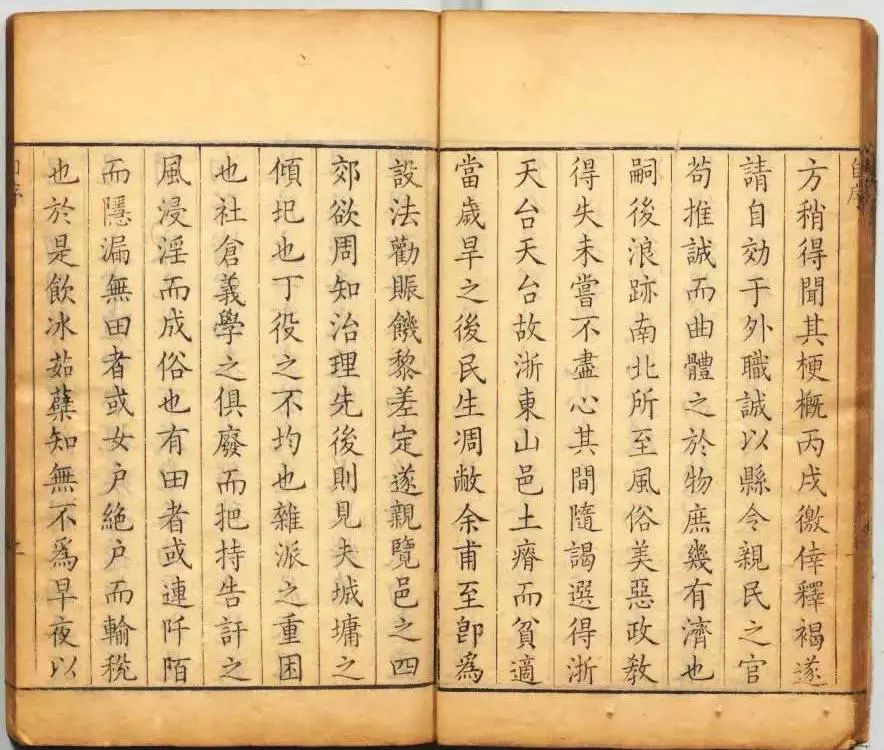 自序
方稍得聞其梗槪丙戌徼倖釋褐遂
請自効于外職誠以縣令親民之官
苟推誠而曲體之於物庶幾有濟也
嗣後浪跡南北所至風俗美惡政教
得失未嘗不盡心其間隨謁選得浙
天台天台故浙東山邑土瘠而貧適
當歲旱之後民生凋敝余甫至卽爲
設法勸賑饑黎差定遂親覽邑之四
郊欲周知治理先後則見夫城墉之
傾圯也丁役之不均也雜派之重困
也社倉義學之俱廢而把持告訐之
風浸淫而成俗也有田者或連阡陌
而隱漏無田者或女户絶户而輸稅
也於是飲冰茹蘗知無不爲早夜以